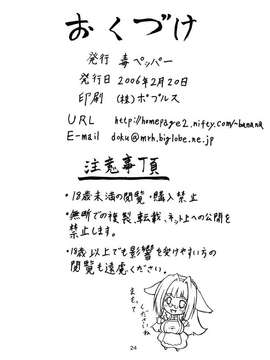 おくづけ
発行 毒ペッパー
発行日 2006年2月20日
印刷 (株)ポプルス
URL http://homepage2.nifty.com/~banana
E-mail doku@mrh.biglobe.ne.jp
注意事項
・18歳未満の閲覧・購入禁止
・無断での複製、転載、ネット上への公開を
禁止します。
・18歳以上でも影響を受けやすい方の
閲覧も遠慮ください。
まもって
くださいね
24